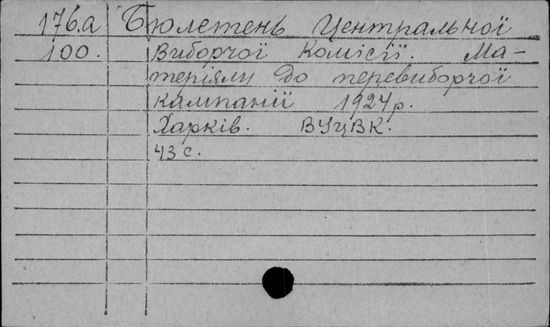 176.а Бюлетень Центральної
100. Виборчої Комісії. Ма-
теріяли до перевиборчої
кампанії 1924 р.
Харків. ВУЦВК.
43 с.